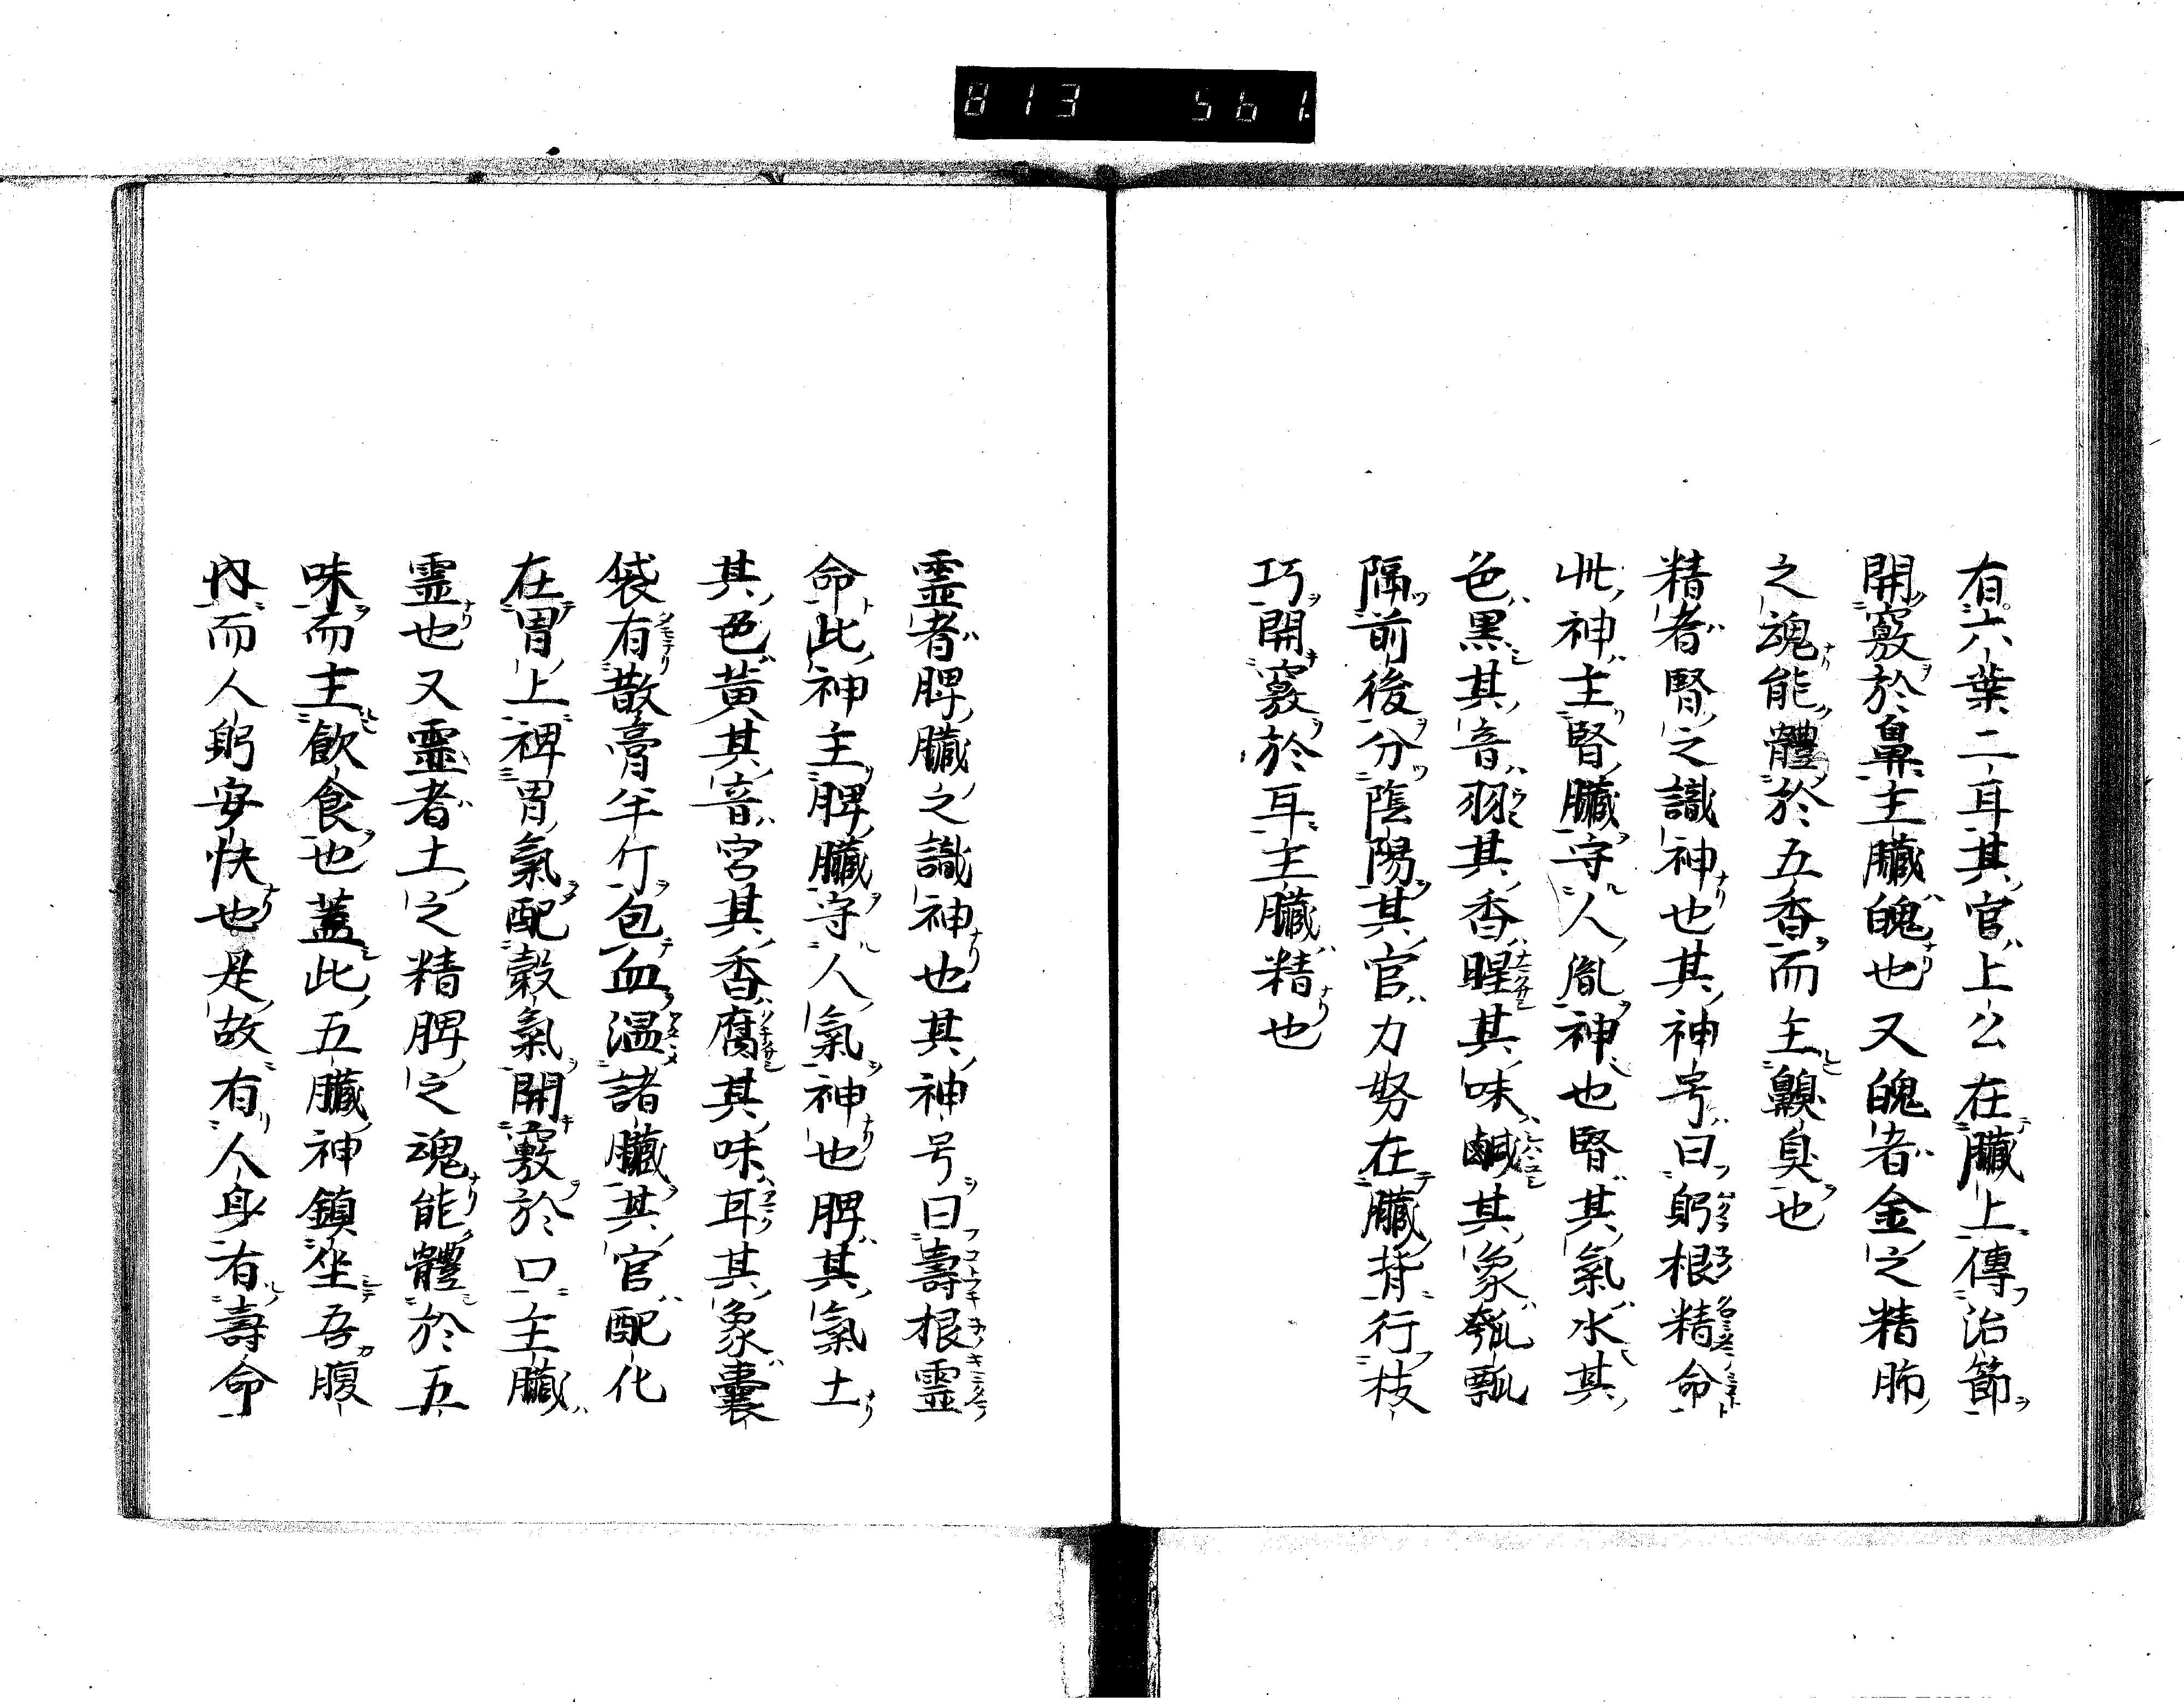 813 561.
有六葉二耳其官上公在臓上傳治節
開竅於鼻主臓魄也又魄者金之精肺
之魂能體於五香而主齅臭也
精者腎之識神也其神号曰躬根精命
此神主腎臓守人胤神也腎其氣水其
色黒其音羽其香腥其味鹹其象瓠瓢
隔前後分陰陽其官力努在臓背行枝
巧開竅於耳主臓精也
霊者脾臓之識神也其神号曰壽根霊
命此神主脾臓守人氣神也脾其氣土
其色黄其音宮其香腐其味耳其象囊
袋有散膏半斤包血温諸臓其官配化
在胃上裨胃氣配穀氣開竅於口主臓
霊也又霊者土之精脾之魂能體於五
味而主飲食也蓋此五臓神鎮坐吾腹
内而人躬安快也是故有人身有壽命